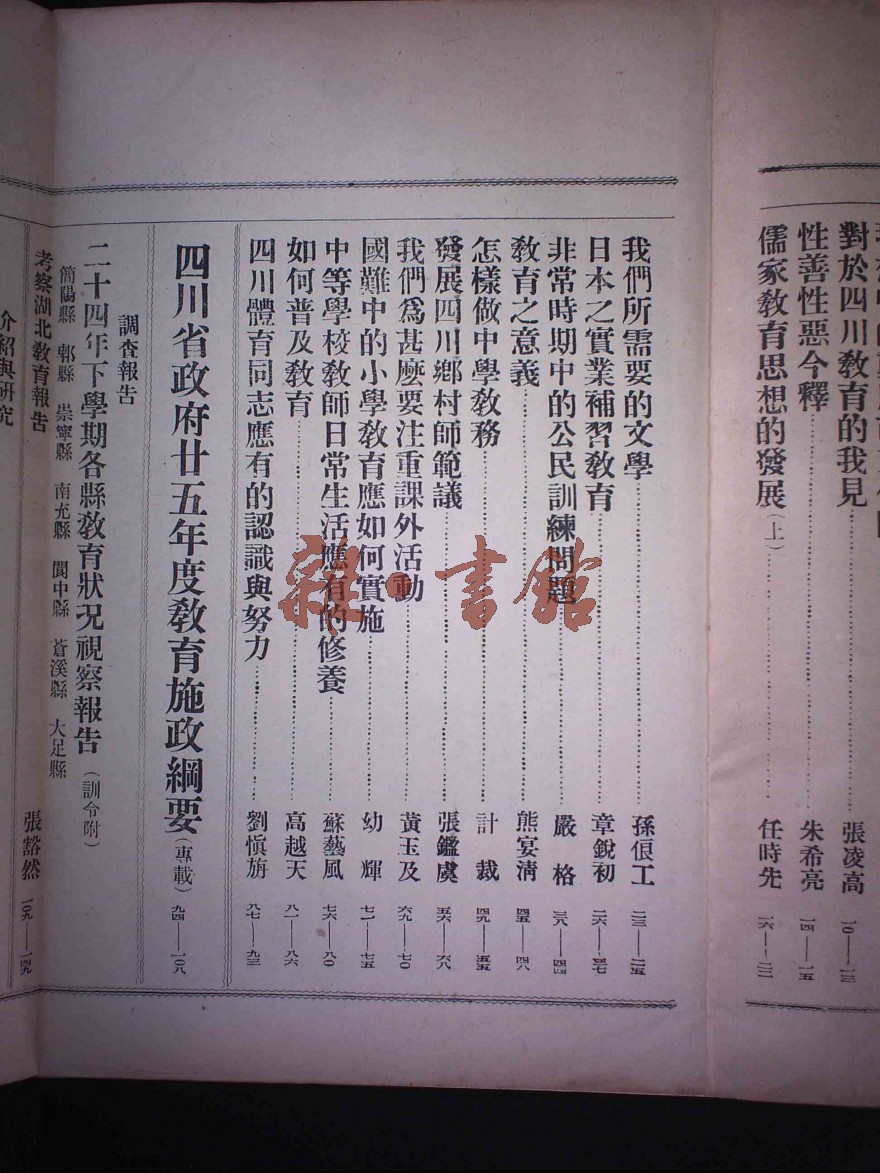 對於四川教育的我見 張凌高 一〇——一三
性善性惡今釋 朱希亮 一四——一五
儒家教育思想的發展(上) 任時先 一六——二二
我們所需要的文學 孫俍工 二三——二五
日本之實業補習教育 章銳初 二六——三七
非常時期中的公民訓練問題 嚴格 三八——四四
教育之意義 熊宴清 四五——四八
怎樣做中學教務 計裁 四九——五五
發展四川鄉村師範議 張鑑虞 五六——六八
我們爲甚麼要注重課外活動 黃玉及 六九——七〇
國難中的小學教育應如何實施 幼輝 七一——七五
中等學校教師日常生活應有的修養 蘇藝風 七六——八〇
如何普及教育 高越天 八一——八六
四川體育同志應有的認識與努力 劉愼旃 八七——九三
四川省政府廿五年度教育施政綱要(專載) 九四——一〇八
調查報告
二十四年下學期各縣教育狀況視察報告(訓令附)
簡陽縣 郫縣 崇寧縣 南充縣 閬中縣 蒼溪縣 大足縣
考察湖北教育報告 張豁然 一〇九——一四九
介紹與研究
雜·書館